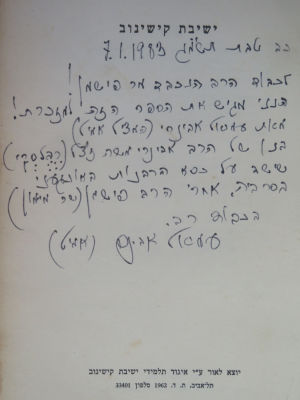 ישיבת קישינוב
כב טבת תשמ״ג 7.1.1983
לכבוד הרב הנכבד מר פישמן!
הנני מגיש את הספר הזה למזכרת!
מאת עמסט אבינרי
בנו של הרב אבינרי משה ז״צל
שישב על כסא הרבנות
בסרביה. אחרי הרב פישמן
בכבוד רב.
יוצא לאור ע״י איגוד תלמידי ישיבת קישינוב
תל־אביב, ת. ד. 1962 טלפון 33401